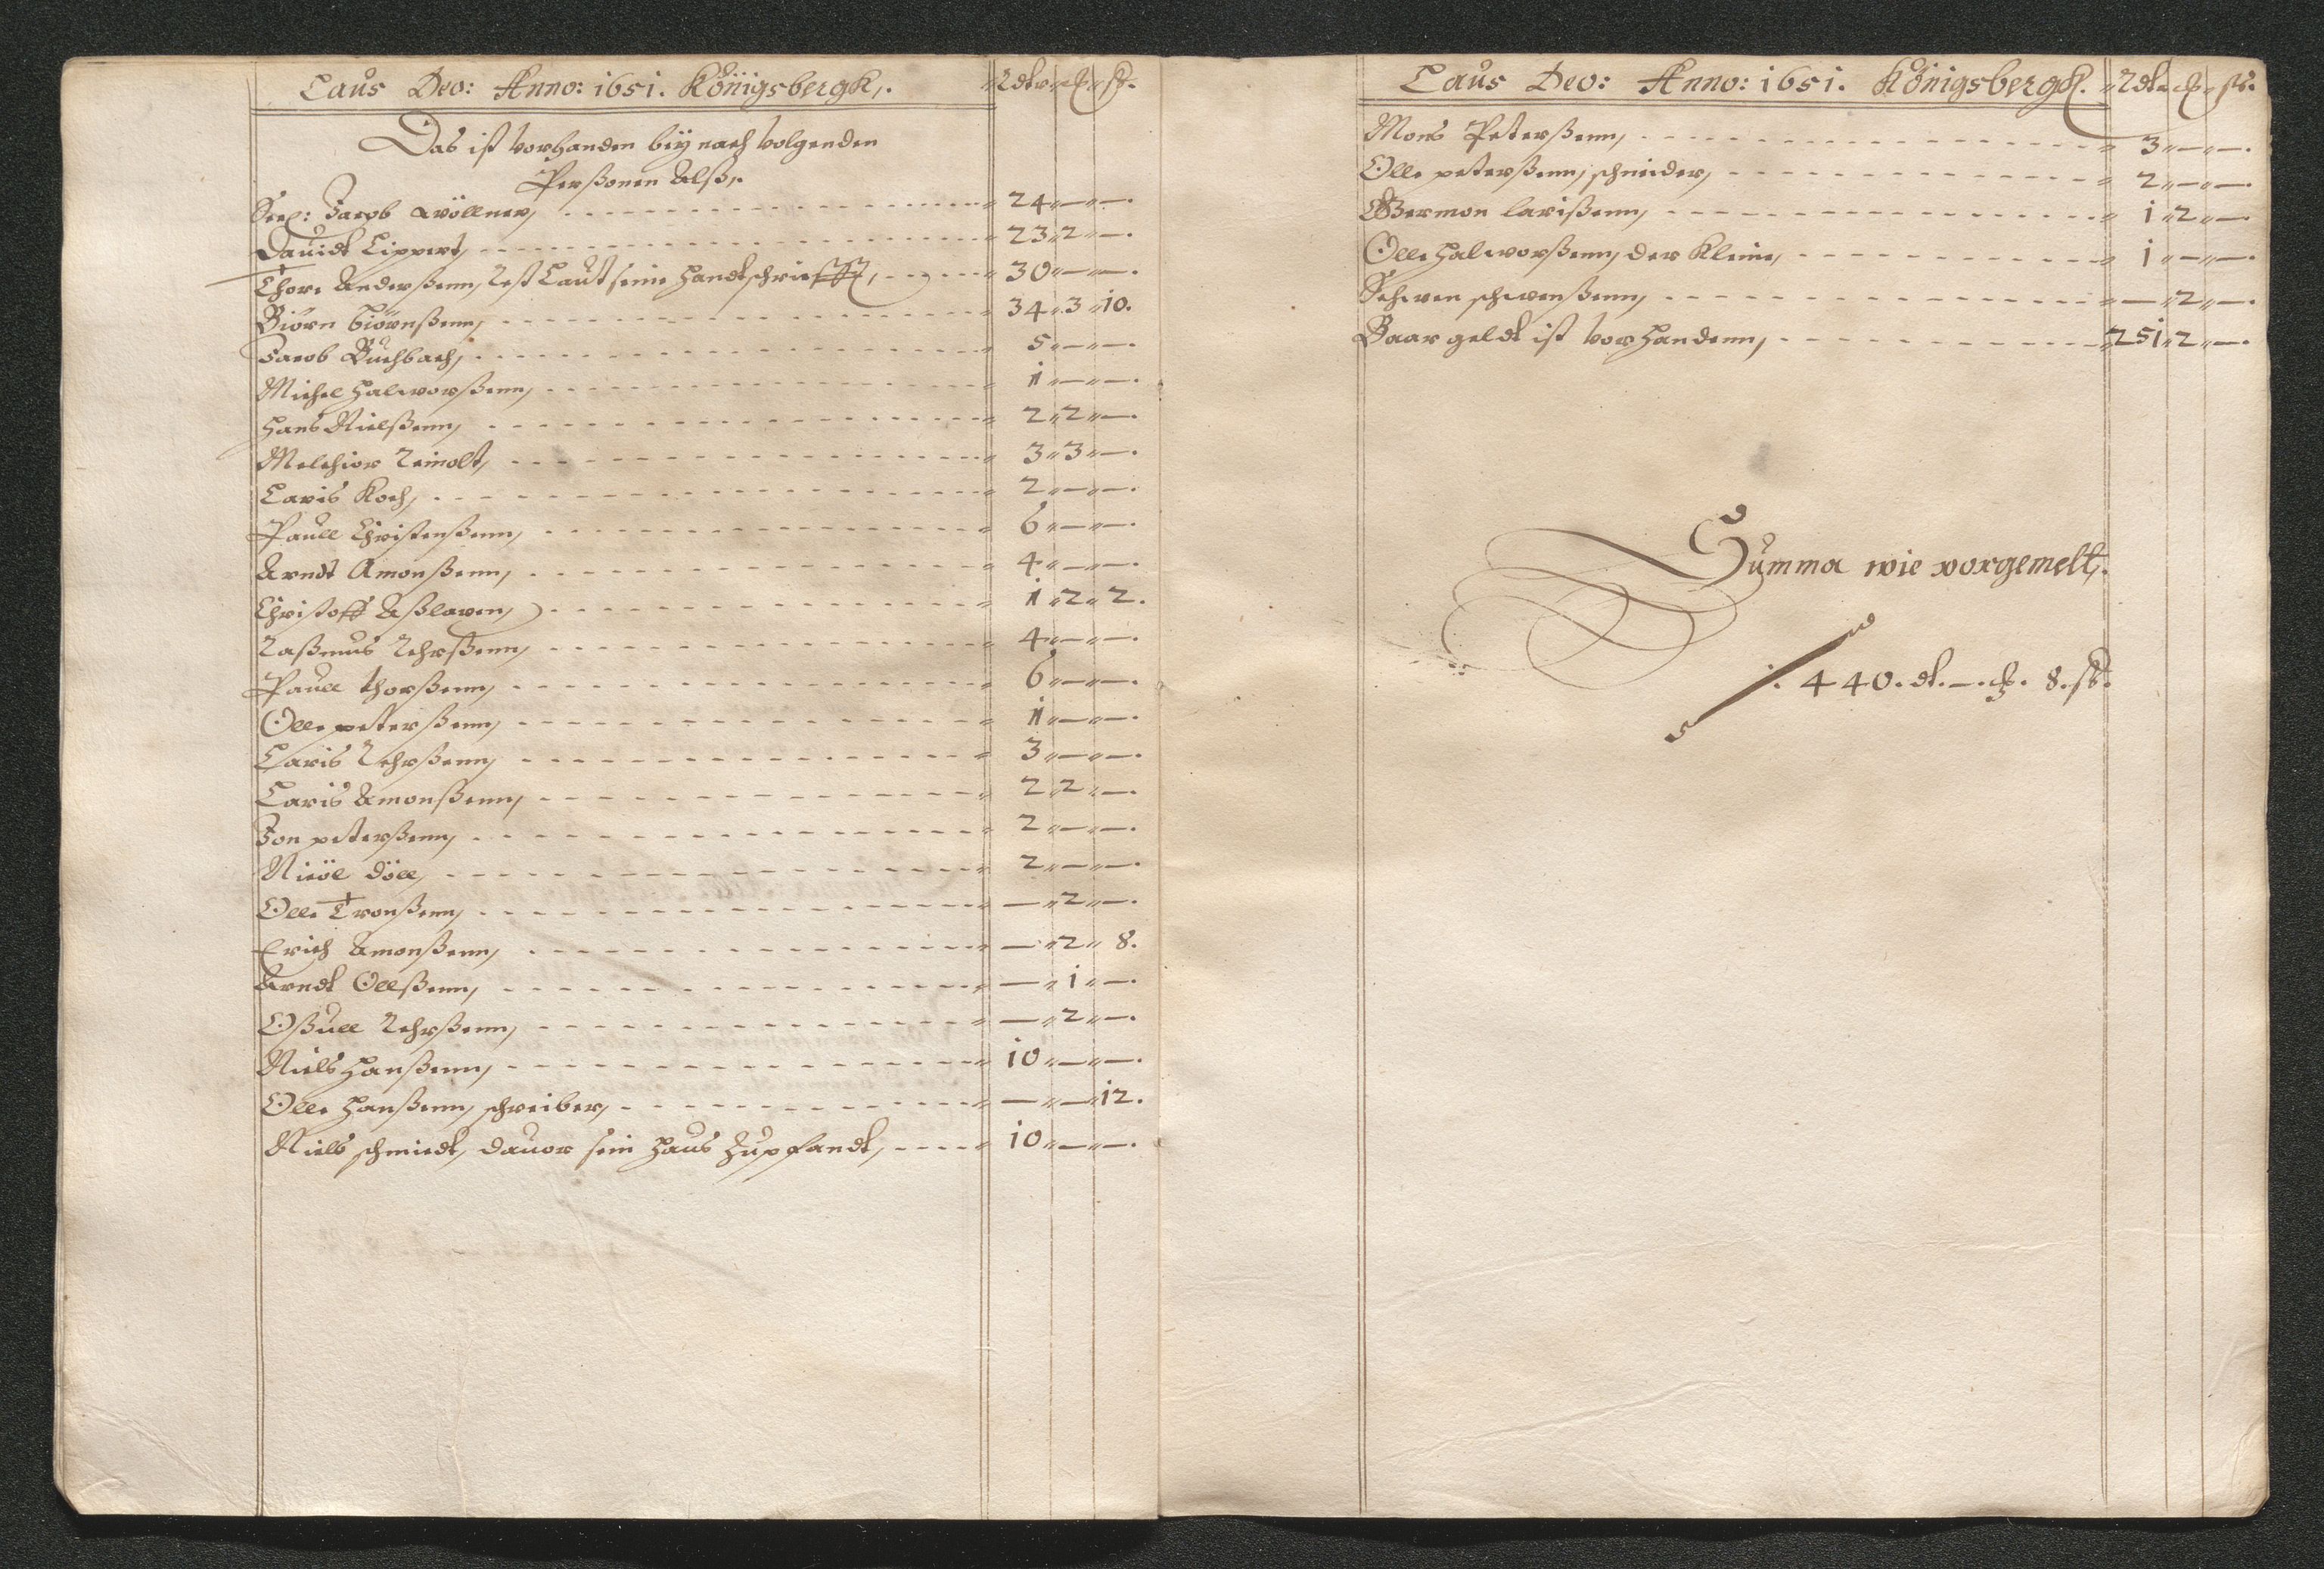 Laus Deo: Anno: 1651. Königsbergk,. Rdlr ß.
Das ist vorhanden biÿ nach volgenden
Perßonen Alß,.
Seel: Jacob Wöllner, 24 — —.
Dauidt Lippert, 23 2 —.
Thore Anderßenn, Rest Laut seine Handtschriefft, 30 — —.
Biörn Biörnßenn, 34 3 10.
Jacob Buchbach, 5 — —.
Michel Halworßenn, 1 — —.
Hans Nielßenn, 2 2 —.
Melchior Reinolt, 3 3 —.
Laris Koch, 2 — —.
Paull Christenßenn, 6 — —.
Arndt Amonßenn, 4 — —.
Christoff Aßlawen, 1 2 2.
Raßmus Rehrßenn, 4 — —.
Pauel thorßenn, 6 — —.
Olle peterßenn, 1 — —.
Laris Rehrßenn, 3 — —.
Laris Amonßenn, 2 2 —.
Jon peterßenn, 2 — —.
Nicöl Döll, 2 — —.
Olle Tronßenn, — 2 —.
Erich Amonßenn, — 2 8.
Arndt Ollßenn, — 1 —.
Oßull Rehrßenn, — 2 —.
Niels Hanßenn, 10 — —.
Olle Hanßenn, schreiber, — — 12.
Niels schmiedt, dauor sein Haus Zupfandt, 10 — —.
Laus Deo: Anno: 1651. Königsbergk. Rdl. ß.
Mons Peterßenn, 3 — —.
Olle peterßenn, schneider, 2 — —.
Germon larißenn, 1 2 —.
Olle Halworßenn, der Kleine, 1 — —.
Schwen schwenßenn, — 2 —.
Baar geldt ist vorhandenn, 251 2 —.
Summa wie vorgemelt,.
440. dl. —. 8. ß.